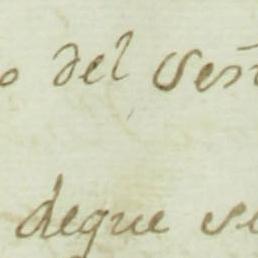 o del Señ
deque se